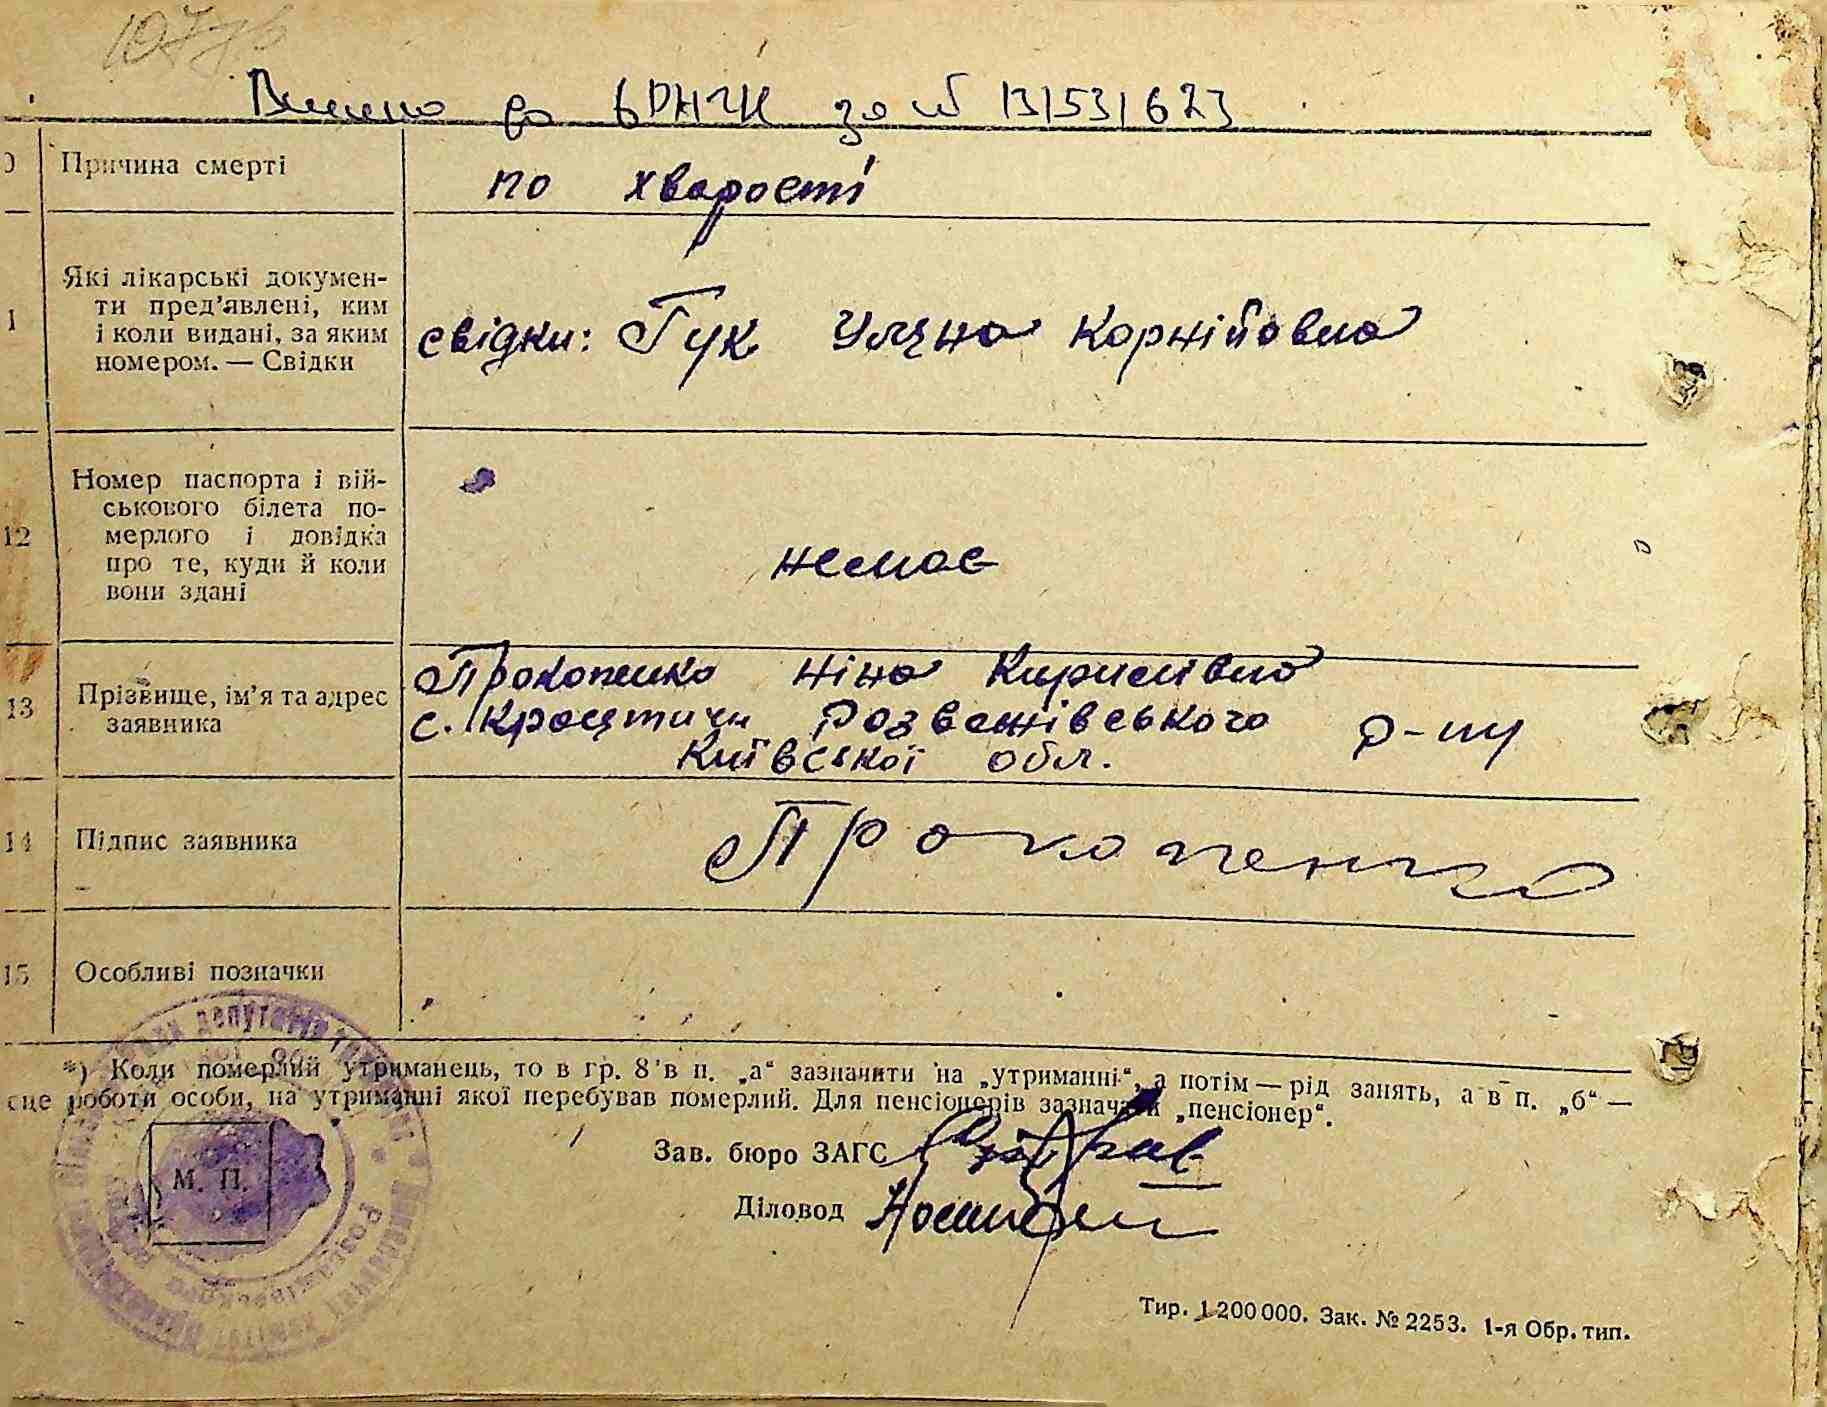 до за № 131531623
Причина смерті
по хворості
1 Які лікарські докумен-
ти пред'явлені, ким
і коли видані, за яким
номером. — Свідки
свідки: Гук Уляна Корнійовна
12 Номер паспорта і вій-
ськового білета по-
мерлого і довідка
про те, куди й коли
вони здані
немає
13 Прізвище, ім'я та адрес
заявника
Прокопенко Ніна Кирилівна
с. Розважівського р-ну
Київської обл.
14 Підпис заявника
Прокопенко
15 Особливі позначки
*) Коли померлий утриманець, то в гр. 8 в п. „а“ зазначити на „утриманні“, а потім — рід занять, а в п. „б“ —
сце роботи особи, на утриманні якої перебував померлий. Для пенсіонерів зазначати „пенсіонер“.
Зав. бюро ЗАГС
М. П.
Діловод
Тир. 1 200 000. Зак. № 2253. 1-я Обр. тип.